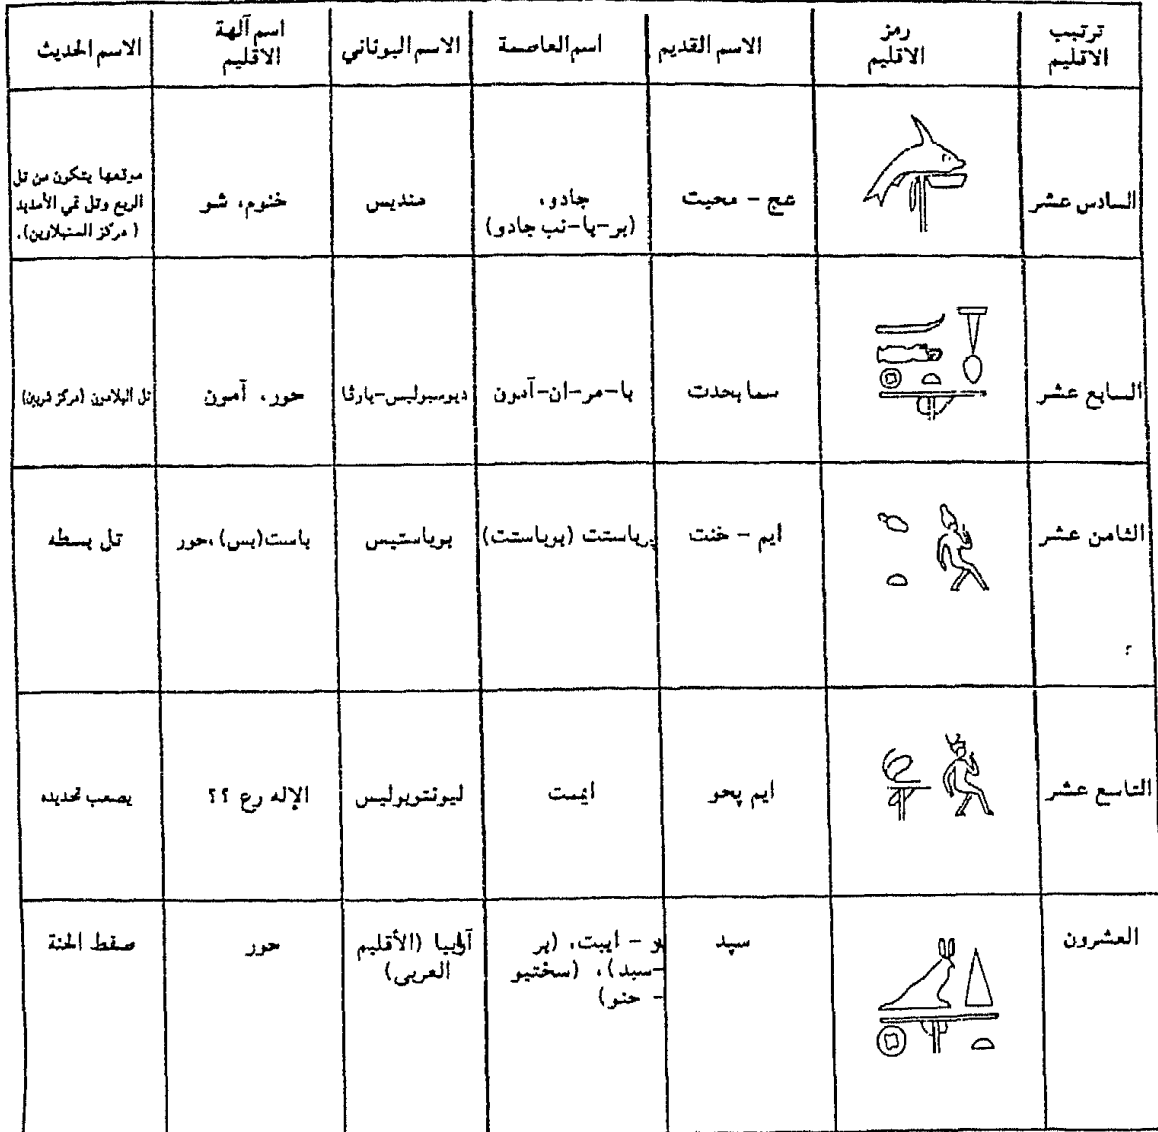 ترتيب الاقليم
رمز الاقليم
الاسم القديم
اسم العاصمة
الاسم اليوناني
اسم آلهة الاقليم
الاسم الحديث
السادس عشر
عج - محيت
جادو،
(بر-با-نب جادو)
منديس
خنوم، شو
موقعها يتكون من تل
الربع وتل تمي الأمديد
(مركز السنبلاوين).
السابع عشر
سما بحدت
با-مر-ان-آمون
ديوسبوليس-بارثا
حور، آمون
تل البلامون (مركز شربين)
الثامن عشر
ايم - خنت
برباستت (بوباستت)
بوباستيس
باست(بس)، حور
تل بسطه
؟
التاسع عشر
ايم پحو
ايمت
ليونتوبوليس
الإله رع ؟؟
يصعب تحديده
العشرون
سپد
و - ايبت، (بر
-سبد)، (سختيو
- حنو)
آرابيا (الأقليم
العربى)
حور
صفط الحنة